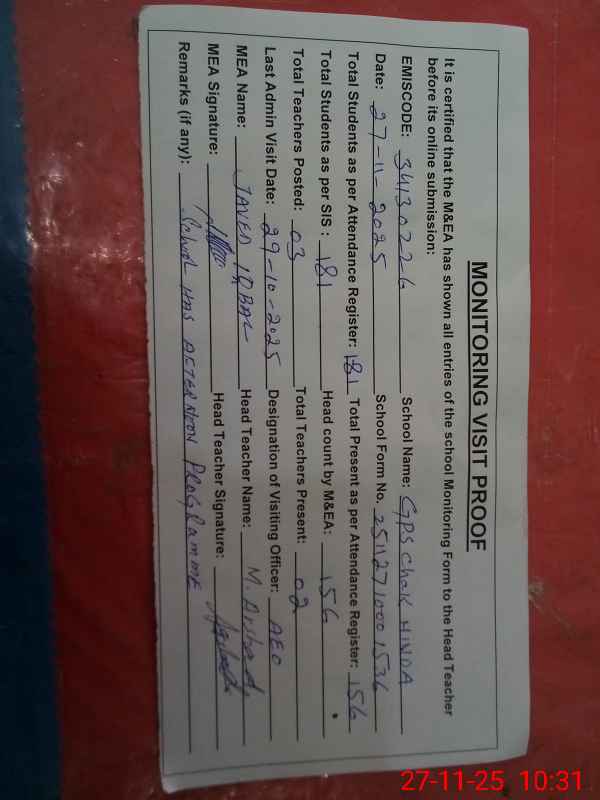 MONITORING VISIT PROOF
It is certified that the M&EA has shown all entries of the school Monitoring Form to the Head Teacher
before its online submission:
EMISCODE: 34130226 School Name: GPS Chak HINDA
Date: 27-11-2025 School Form No. 25112710001536
Total Students as per Attendance Register: 181 Total Present as per Attendance Register: 156
Total Students as per SIS : 181 Head count by M&EA: 156
Total Teachers Posted: 03 Total Teachers Present: 02
Last Admin Visit Date: 29-10-2025 Designation of Visiting Officer: AEO
MEA Name: JAVED IQBAL Head Teacher Name: M. Arshad
MEA Signature: Head Teacher Signature:
Remarks (if any): School HAS AFTERNOON PROGRAMME
27-11-25 10:31